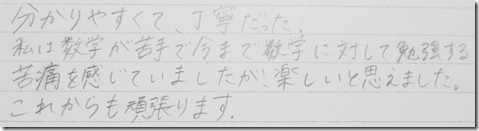 分かりやすくて、丁寧だった。
私は数学が苦手で今まで数学に対して勉強する
苦痛を感じていましたが、楽しいと思えました。
これからも頑張ります.